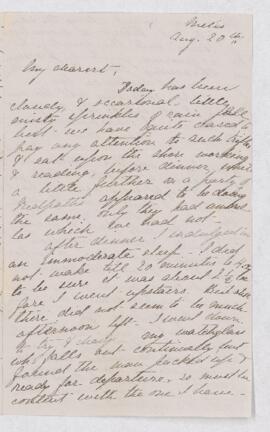 Metis
Aug. 20th
My dearest,
Today has been
cloudy, & occasional little
misty sprinkles of rain fell
but we have quite ceased to
pay any attention to such trifles
& sat upon the shore working
& reading, before dinner, while
a little further on a party of
Redpaths appeared to be doing
the same, only they had umbrel
las which we had not.
After dinner I indulged in
an immoderate sleep. I did
not wake till 20 minutes to 4,
to be sure it was about 2 be
fore I went upstairs. But still
there did not seem to be much
afternoon left. I went down
to try & change my watchglass
who falls out continually but
found the man packed up &
ready for departure, so must be
content with the one I have.